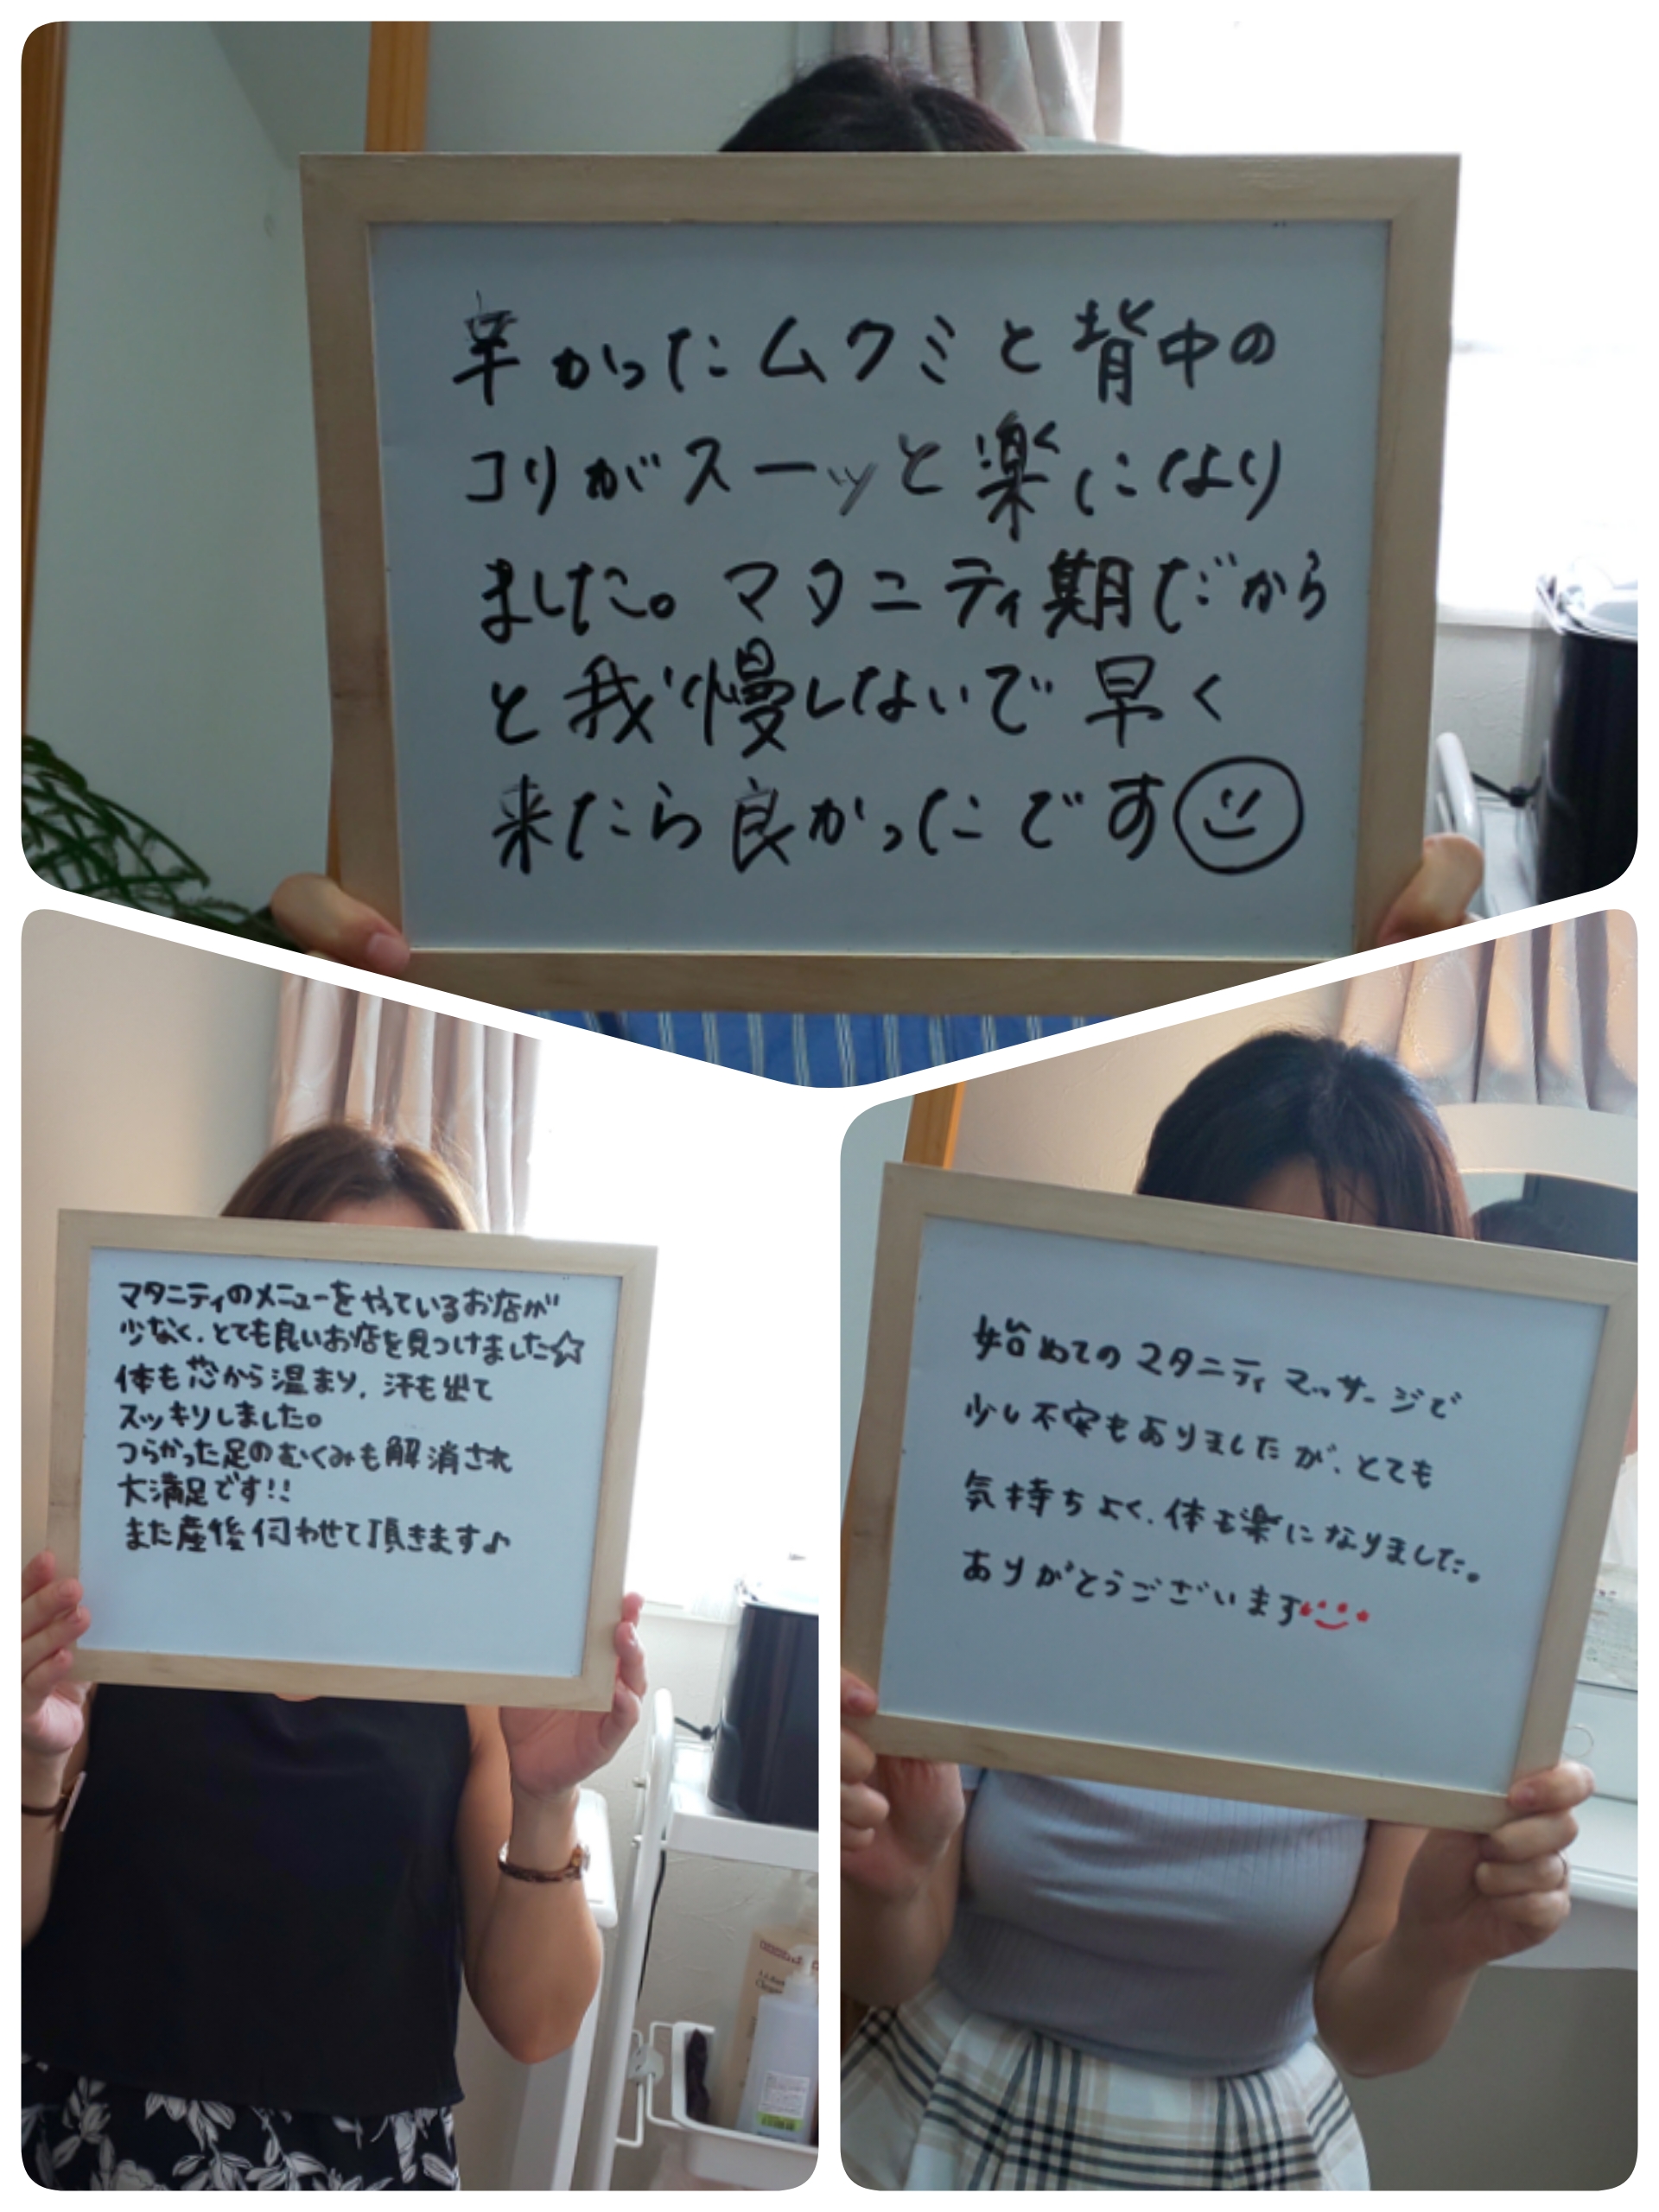 辛かったムクミと背中の
コリがスーッと楽になり
ました。マタニティ期だから
と我慢しないで早く
来たら良かったです
マタニティのメニューをやっているお店が
少なく、とても良いお店を見つけました☆
体も芯から温まり、汗も出て
スッキリしました。
つらかった足のむくみも解消され
大満足です!!
また産後伺わせて頂きます♪
始めてのマタニティマッサージで
少し不安もありましたが、とても
気持ちよく、体も楽になりました。
ありがとうございます